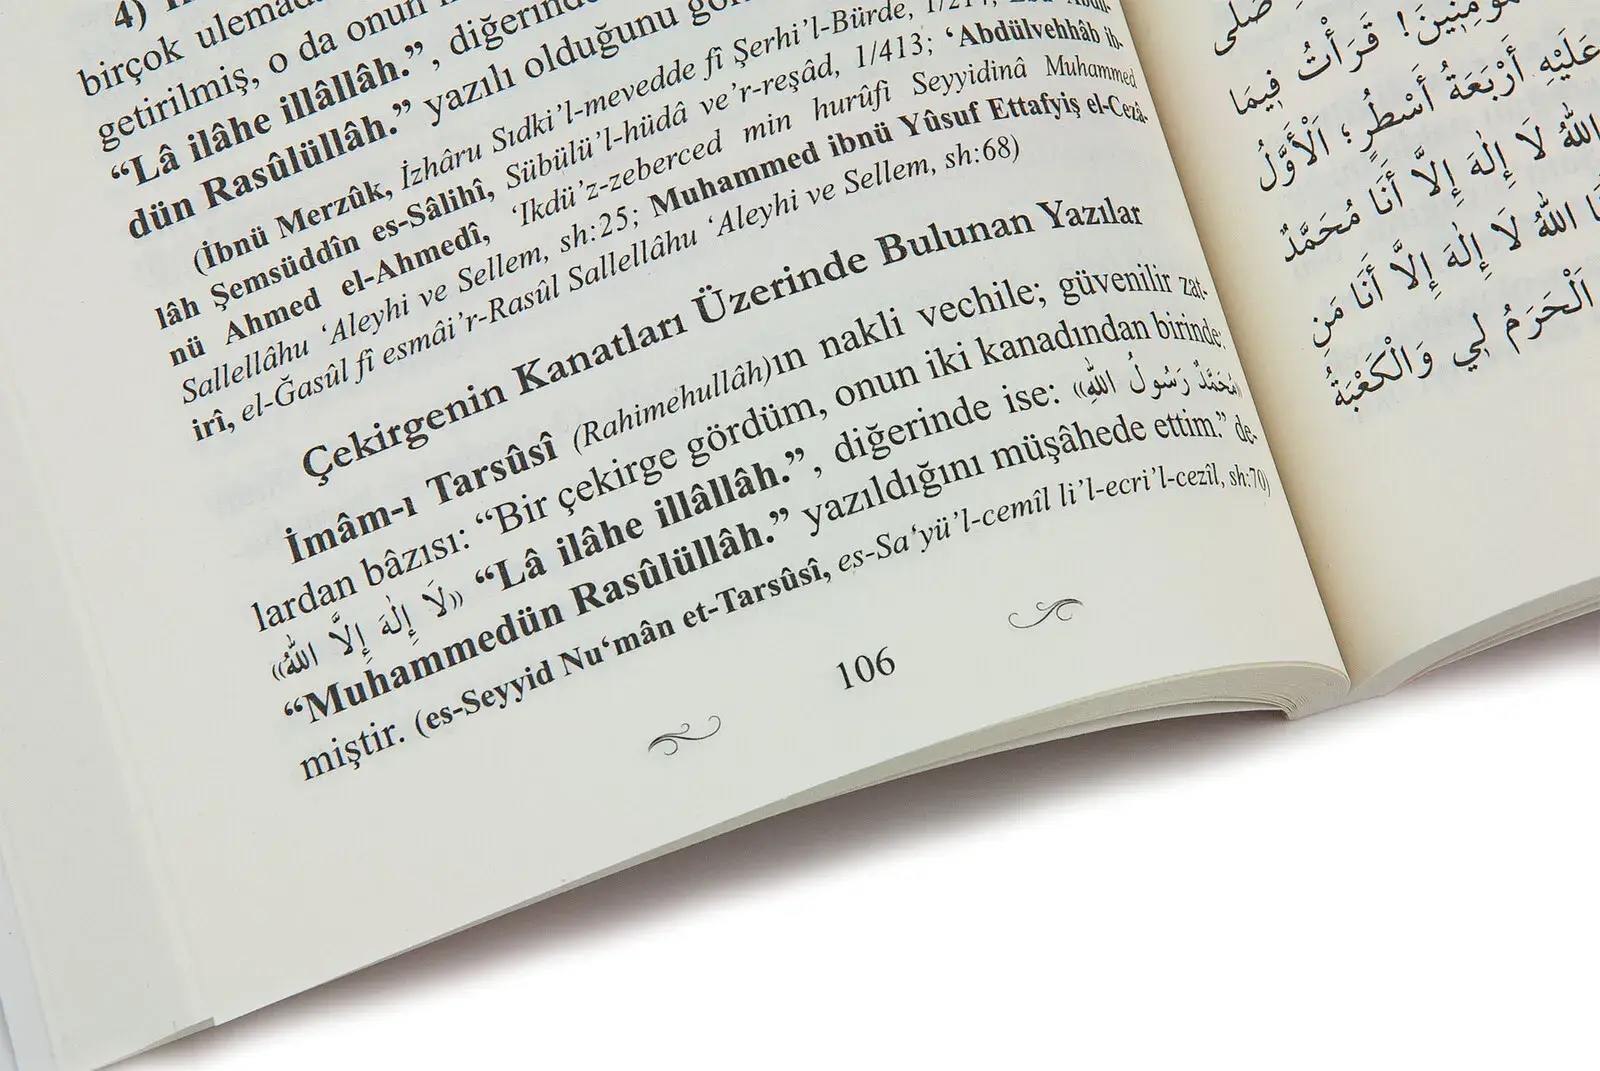 4)
birçok ulemâd
getirilmiş, o da onun
“Lâ ilâhe illâllâh.”, diğerinde
dün Rasûlüllâh.” yazılı olduğunu
(İbnü Merzûk, İzhâru Sıdki’l-mevedde fî Şerhi’l-Bürde, 1/214;
lâh Şemsüddîn es-Sâlihî, Sübülü’l-hüdâ ve’r-reşâd, 1/413; ‘Abdülvehhâb ib-
nü Ahmed el-Ahmedî, ‘Ikdü’z-zeberced min hurûfi Seyyidinâ Muhammed
Sallellâhu ‘Aleyhi ve Sellem, sh:25; Muhammed ibnü Yûsuf Ettafyiş el-Cezâ-
irî, el-Ğasûl fî esmâi’r-Rasûl Sallellâhu ‘Aleyhi ve Sellem, sh:68)
Çekirgenin Kanatları Üzerinde Bulunan Yazılar
İmâm-ı Tarsûsî (Rahimehullâh)ın nakli vechile; güvenilir zat-
lardan bâzısı: “Bir çekirge gördüm, onun iki kanadından birinde:
«لَا إِلٰهَ إِلَّا اللّٰهُ» “Lâ ilâhe illâllâh.”, diğerinde ise: «مُحَمَّدٌ رَسُولُ اللّٰهِ»
“Muhammedün Rasûlüllâh.” yazıldığını müşâhede ettim.” de-
miştir. (es-Seyyid Nu‘mân et-Tarsûsî, es-Sa‘yü’l-cemîl li’l-ecri’l-cezîl, sh:70)
106
صَلَّى
قَرَأْتُ فِيمَا
عَلَيْهِ أَرْبَعَةُ أَسْطُرٍ؛ اَلْأَوَّلُ
اللّٰهُ لَا إِلٰهَ إِلَّا أَنَا مُحَمَّدٌ
اللّٰهُ لَا إِلٰهَ إِلَّا أَنَا مَنِ
اَلْحَرَمُ لِي وَالْكَعْبَةُ